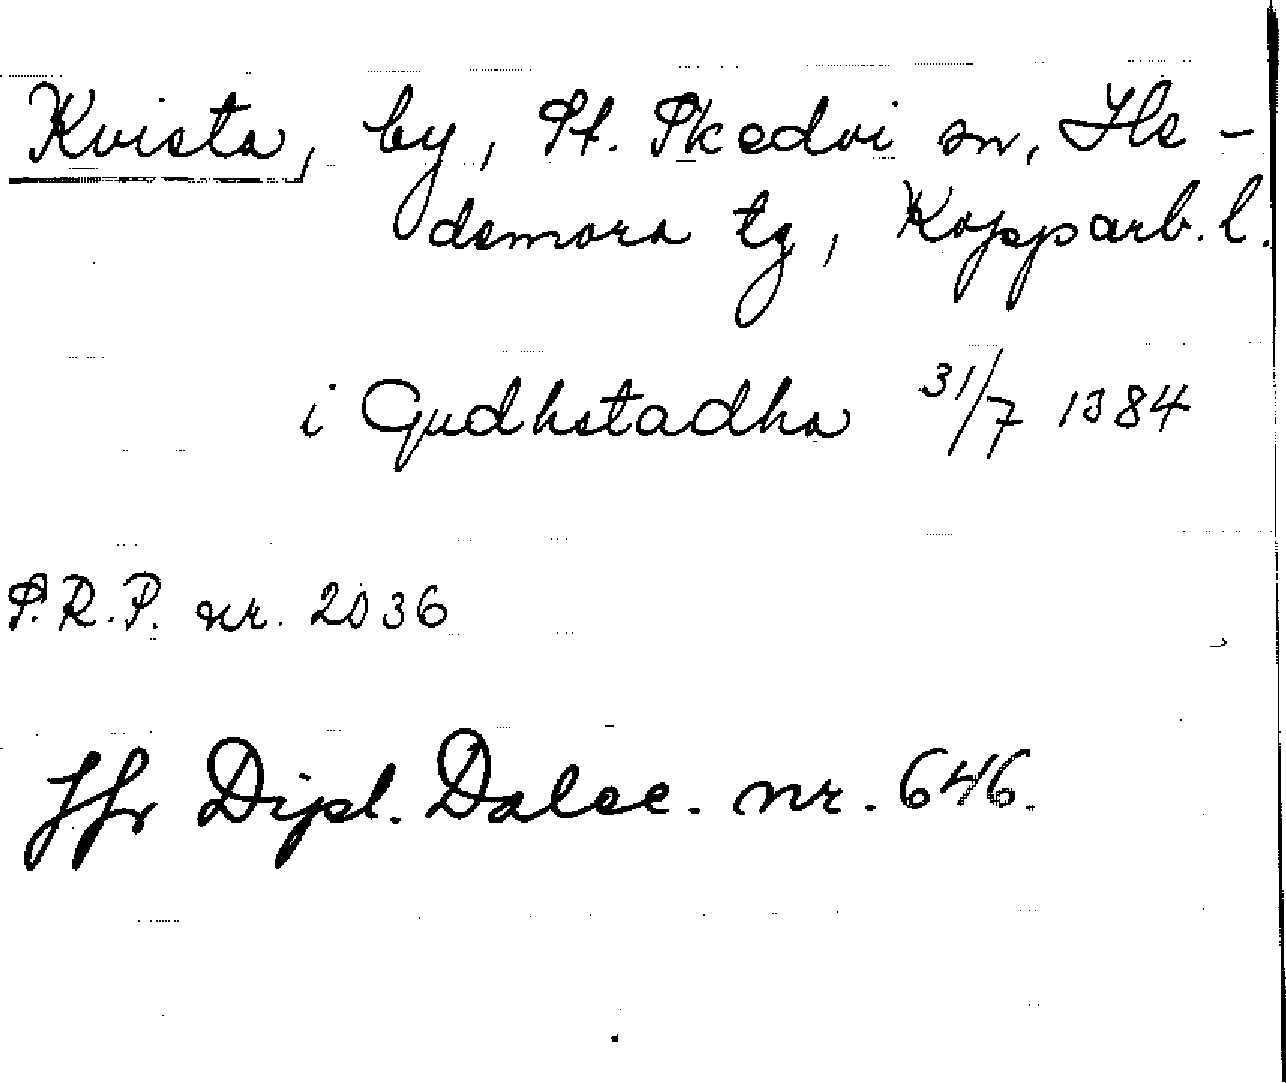 Kvista, by, St. Skedvi sn, He-
demora tg, Kopparb. l.
i Gudhstadha 31/7 1384
S.R.P. nr. 2036
Jfr Dipl. Dalec. nr. 646.